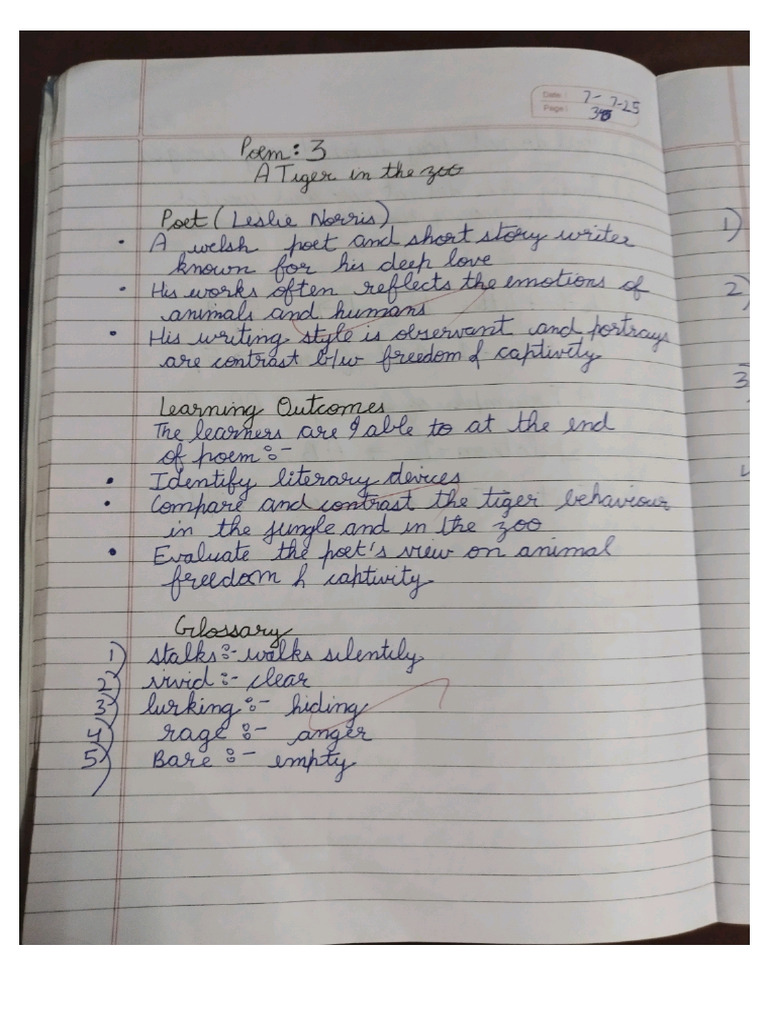 Date: 7-7-25
Page: 38
Poem: 3
A Tiger in the zoo
Poet (Leslie Norris)
• A welsh poet and short story writer
known for his deep love
• His works often reflects the emotions of
animals and humans
• His writing style is observant and portrays
are contrast b/w freedom & captivity
Learning Outcomes
The learners are able to at the end
of poem :-
• Identify literary devices
• Compare and contrast the tiger behaviour
in the jungle and in the zoo
• Evaluate the poet's view on animal
freedom & captivity
Glossary
1) stalks :- walks silentily
2) vivid :- clear
3) lurking :- hiding
4) rage :- anger
5) Bare :- empty
1)
2)
3
4